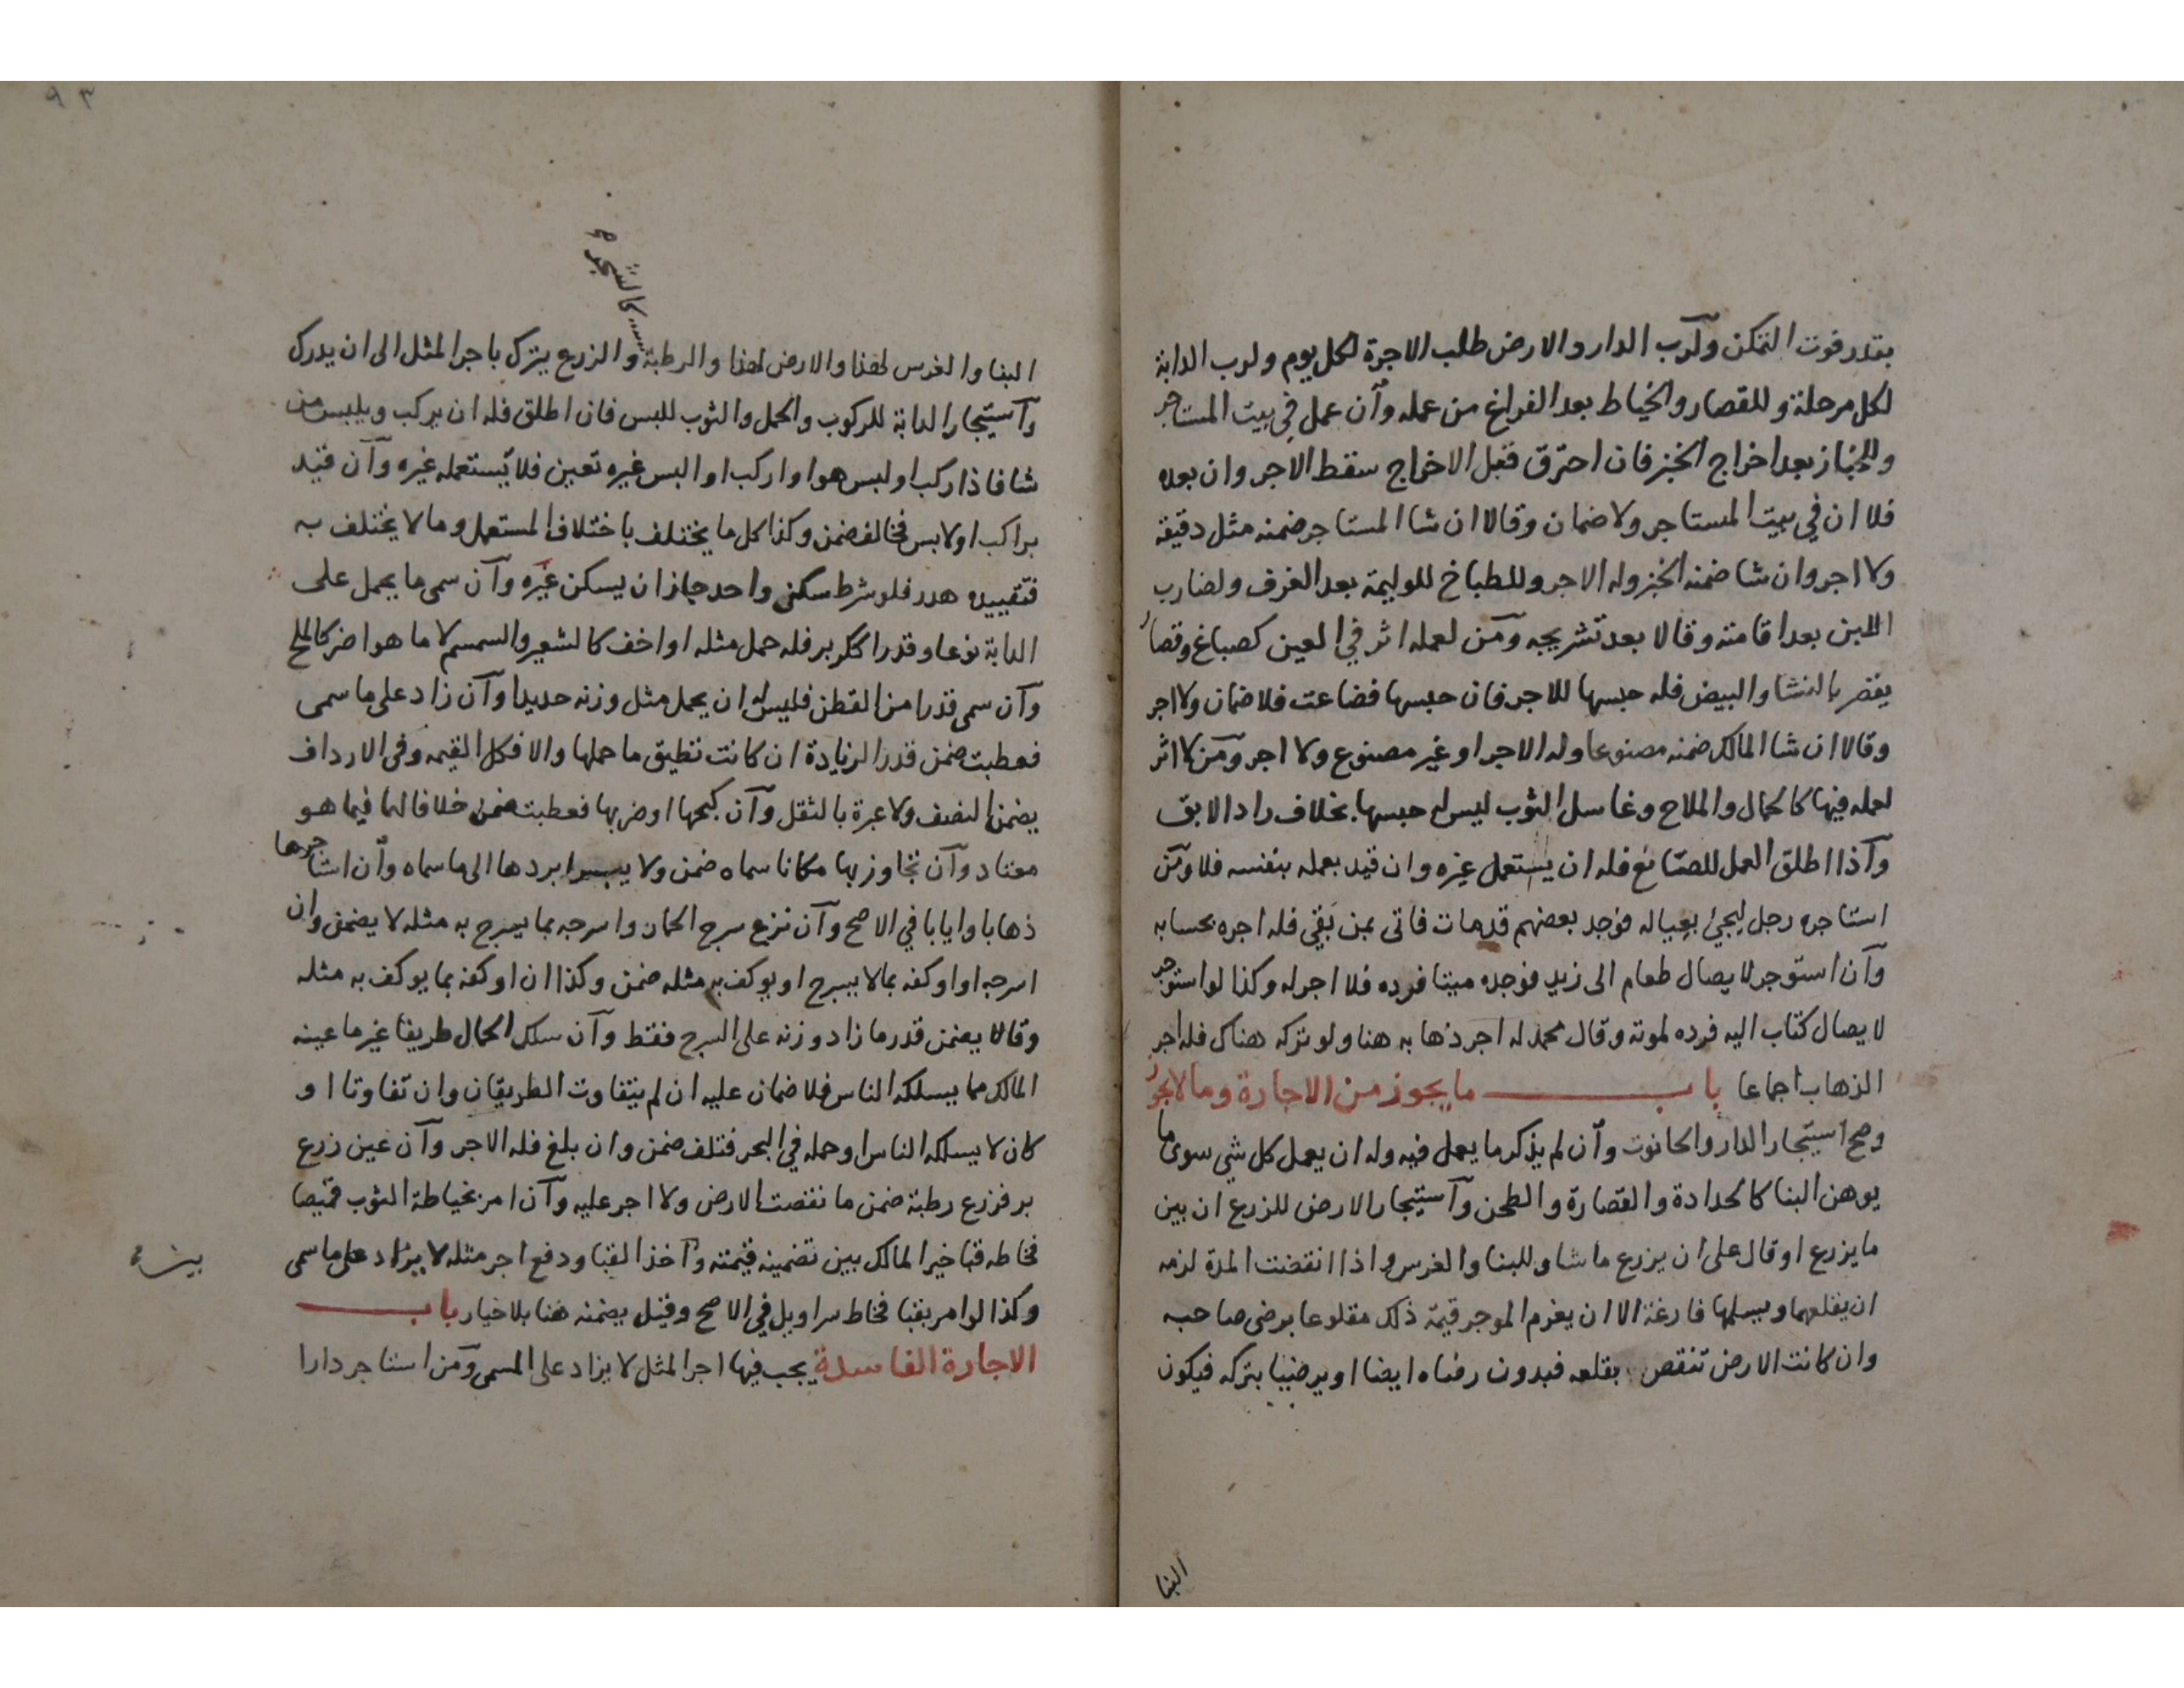 بقدر فوت التمكن ولرب الدار والارض طلب الاجرة لكل يوم ولرب الدابة
لكل مرحلة وللقصار والخياط بعد الفراغ من عمله وان عمل في بيت المستاجر
وللخباز بعد اخراج الخبز فان احترق قبل الاخراج سقط الاجر وان بعده
فلا ان في بيت المستاجر ولا ضمان وقالا ان شا المستاجر ضمنه مثل دقيقه
ولا اجر وان شا ضمنه الخبز وله الاجر وللطباخ للوليمة بعد الغرف ولضارب
اللبن بعد اقامته وقالا بعد تشريجه ومن لعمله اثر في العين كصباغ وقصار
يقصر بالنشا والبيض فله حبسها للاجر فان حبسها فضاعت فلا ضمان ولا اجر
وقالا ان شا المالك ضمنه مصنوعا وله الاجر او غير مصنوع ولا اجر ومن لا اثر
لعمله فيها كالحمال والملاح وغاسل الثوب ليس له حبسها بخلاف راد الابق
واذا اطلق العمل للصانع فله ان يستعمل غيره وان قيد بعمله بنفسه فلا ومن
استاجره رجل ليجئ بعياله فوجد بعضهم قد مات فاتى بمن بقي فله اجره بحسابه
وان استوجر لايصال طعام الى زيد فوجده ميتا فرده فلا اجر له وكذا لو استوجر
لايصال كتاب اليه فرده لموته وقال محمد له اجر ذهابه هنا ولو تركه هناك فله اجر
الذهاب اجماعا باب ما يجوز من الاجارة وما لا يجوز
وصح استيجار الدار والحانوت وان لم يذكر ما يعمل فيه وله ان يعمل كل شي سوى ما
يوهن البنا كالحدادة والقصارة والطحن واستيجار الارض للزرع ان بين
ما يزرع او قال على ان يزرع ما شا وللبنا والغرس واذا انقضت المدة لزمه
ان يقلعهما ويسلمها فارغة الا ان يغرم الموجر قيمة ذلك مقلوعا برضى صاحبه
وان كانت الارض تنقص بقلعه فبدون رضاه ايضا او يرضيا بتركه فيكون
البنا
٩٣
كالشجر
البنا والغرس لهذا والارض لهذا والرطبة والزرع يترك باجر المثل الى ان يدرك
واستيجار الدابة للركوب والحمل والثوب للبس فان اطلق فله ان يركب ويلبس من
شا فاذا ركب او لبس هو او اركب او البس غيره تعين فلا يستعمله غيره وان قيد
براكب او لابس فخالف ضمن وكذا كل ما يختلف باختلاف المستعمل وما لا يختلف به
فتقييده هدر فلو شرط سكنى واحد جاز ان يسكن غيره وان سمى ما يحمل على
الدابة نوعا وقدرا ككر بر فله حمل مثله او اخف كالشعير والسمسم لا ما هو اضر كالملح
وان سمى قدرا من القطن فليس له ان يحمل مثل وزنه حديدا وان زاد على ما سمى
فعطبت ضمن قدر الزيادة ان كانت تطيق ما حملها والا فكل القيمه وفي الارداف
يضمن النصف ولا عبرة بالثقل وان كبحها او ضربها فعطبت ضمن خلافا لهما فيما هو
معتاد وان تجاوز بها مكانا سماه ضمن ولا يبرا بردها الى ما سماه وان استاجرها
ذهابا وايابا في الاصح وان نزع سرج الحمار واسرجه بما يسرج به مثله لا يضمن وان
اسرجه او اوكفه بما لا يسرج او يوكف به مثله ضمن وكذا ان اوكفه بما يوكف به مثله
وقالا يضمن قدر ما زاد وزنه على السرج فقط وان سلك الحمال طريقا غير ما عينه
المالك مما يسلكه الناس فلا ضمان عليه ان لم يتفاوت الطريقان وان تفاوتا او
كان لا يسلكه الناس او حمله في البحر فتلف ضمن وان بلغ فله الاجر وان عين زرع
بر فزرع رطبة ضمن ما نقصت الارض ولا اجر عليه وان امر بخياطة الثوب قميصا
فخاطه قبا خير المالك بين تضمينه قيمته واخذ القبا ودفع اجر مثله لا يزاد على ما سمى
وكذا لو امر بقبا فخاط سراويل في الاصح وقيل يضمنه هنا بلا خيار باب
الاجارة الفاسدة يجب فيها اجر المثل لا يزاد على المسمى ومن استاجر دارا